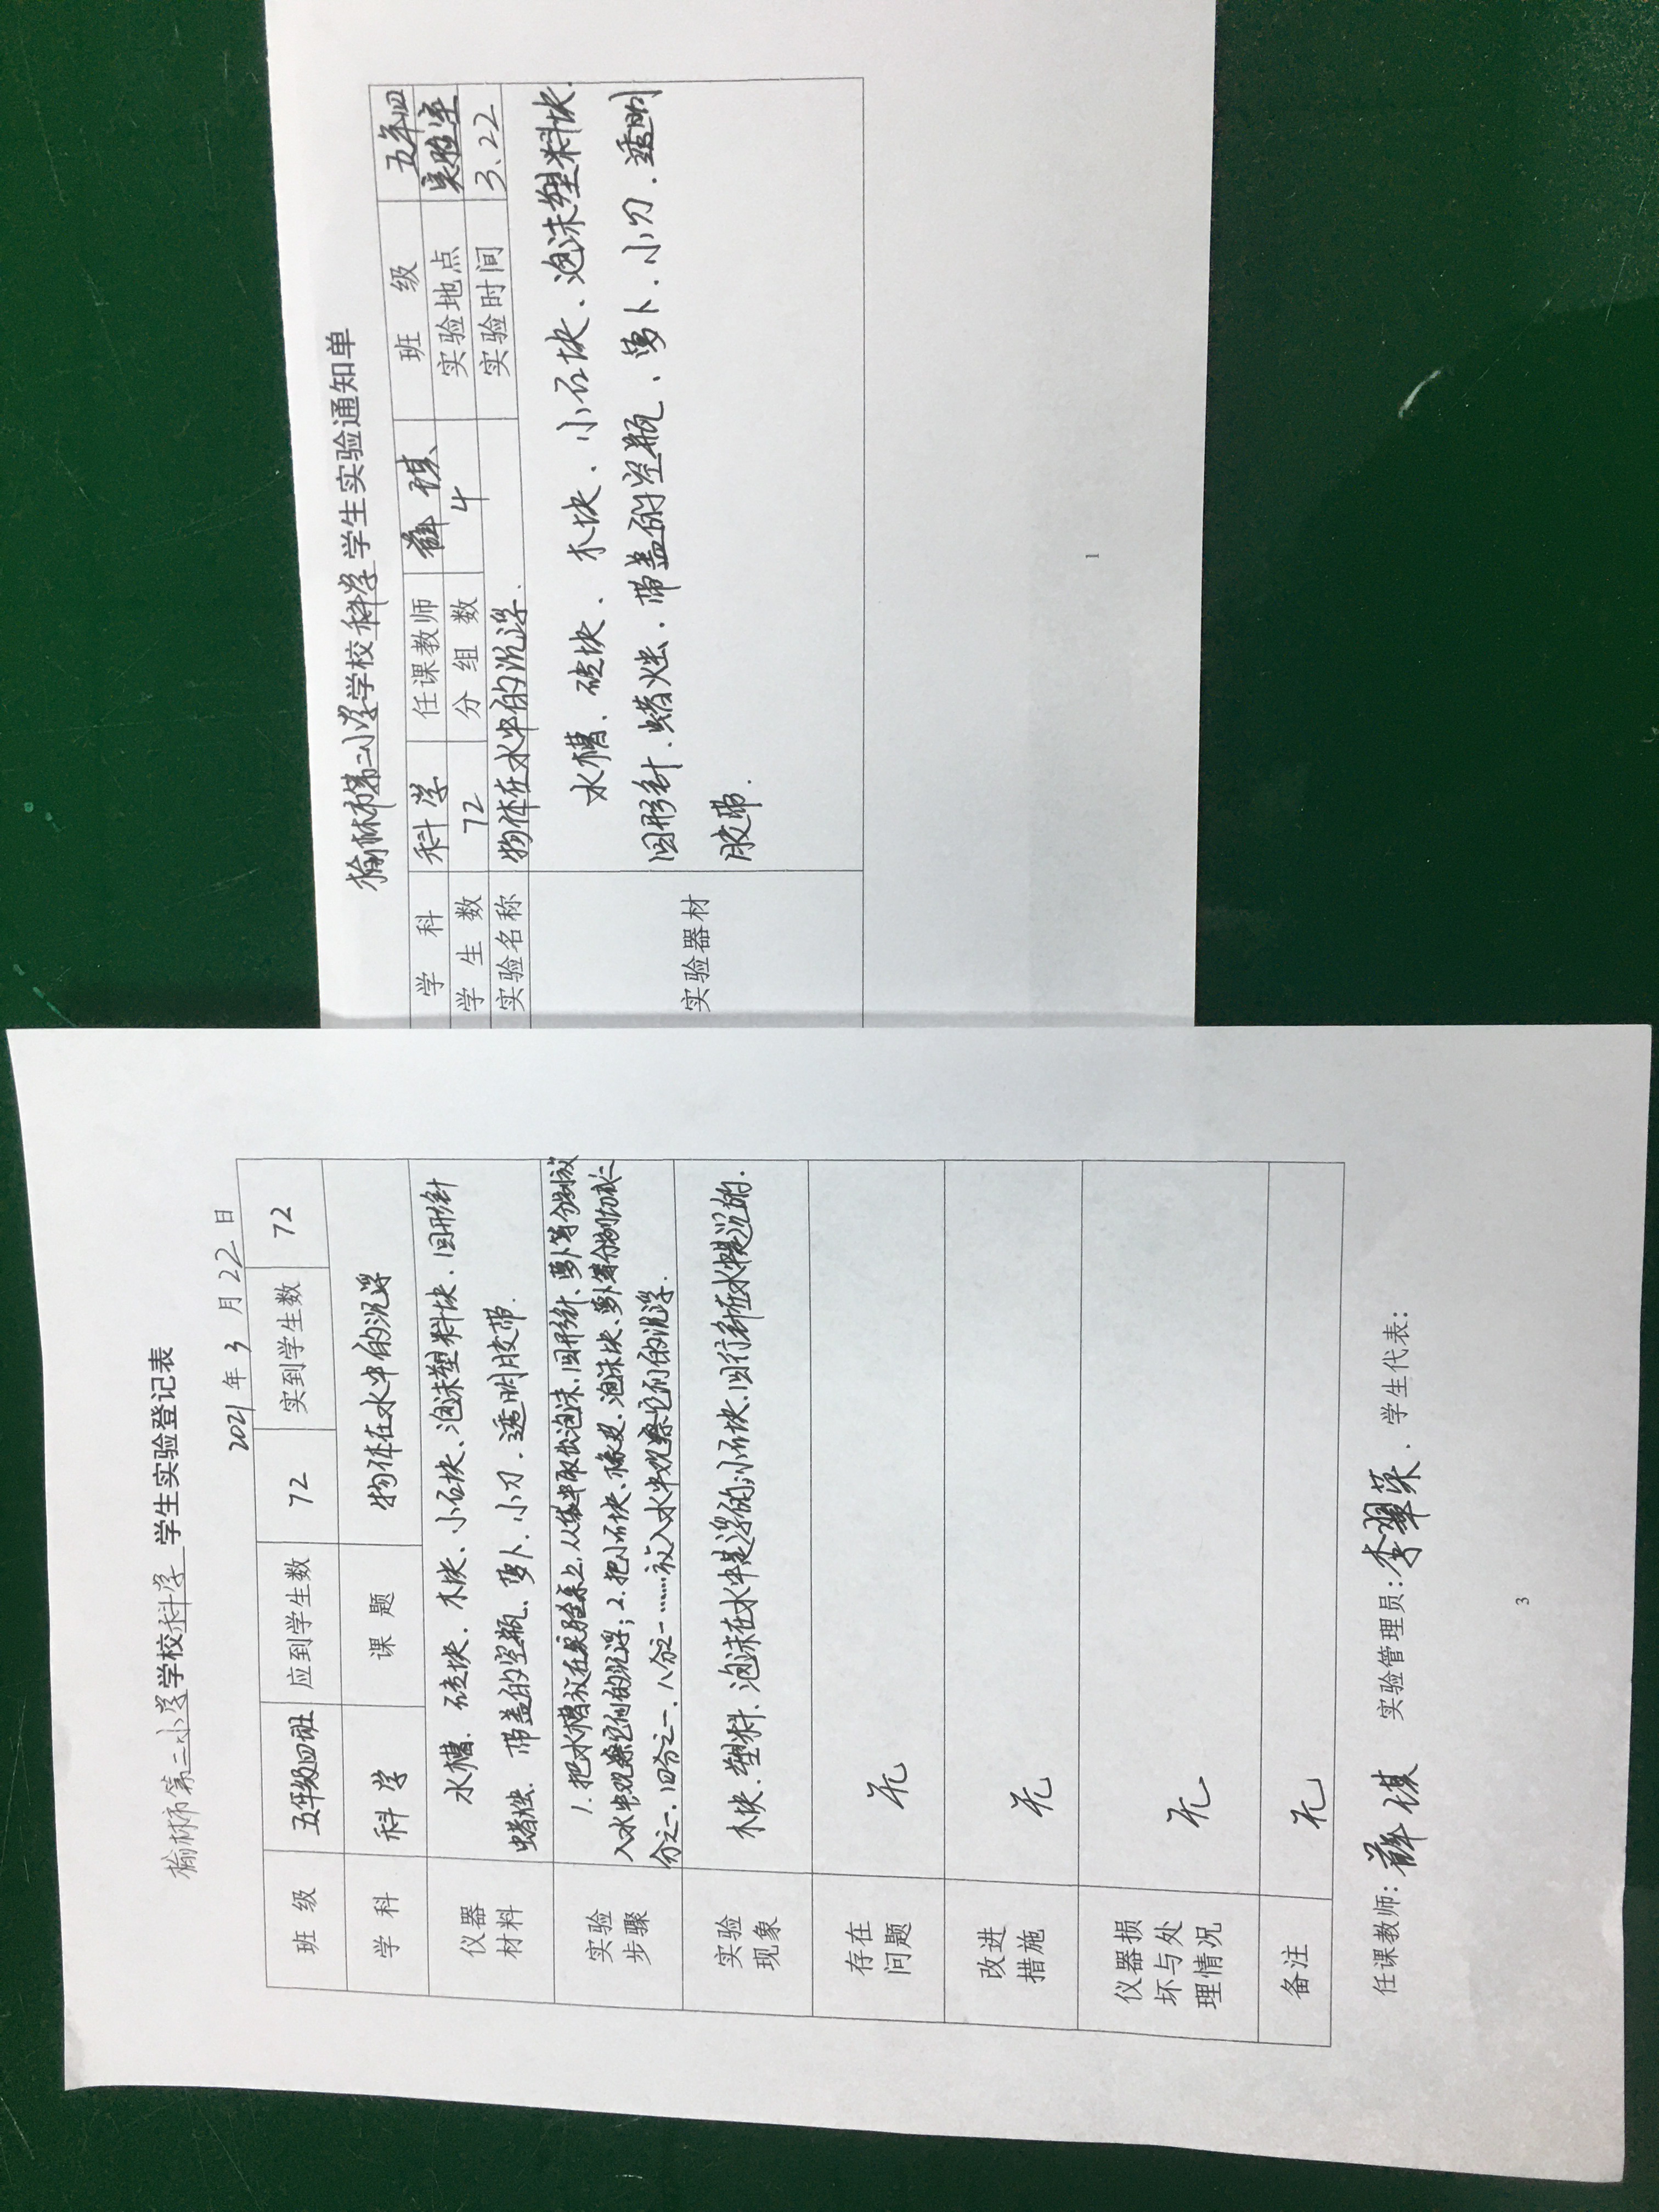 榆林市第二小学学校科学 学生实验登记表
2021年3月22日
班 级 五年级四班 应到学生数 72 实到学生数 72
学 科 科学 课 题 物体在水中的沉浮
仪器材料 水槽、砖块、木块、小石块、泡沫塑料块、回形针
蜡烛、带盖的空瓶、萝卜、小刀、透明胶带.
实验步骤 1.把水槽放在实验桌上,从袋中取出泡沫、回形针、萝卜等分别放
入水中观察它们的沉浮;2.把小石块、橡皮、泡沫块、萝卜等分别切成二
分之一、四分之一、八分之一……放入水中观察它们的沉浮.
实验现象 木块、塑料、泡沫在水中是浮的;小石块、回行针在水中是沉的.
存在问题 无
改进措施 无
仪器损坏与处理情况 无
备注 无
任课教师: 薛祺 实验管理员:李翠荣、学生代表:
3
榆林市第二小学学校科学 学生实验通知单
学 科 科学 任课教师 薛祺 班 级 五年四
学 生 数 72 分 组 数 4 实验地点 实验室
实验名称 物体在水中的沉浮. 实验时间 3、22
实验器材 水槽、砖块、木块、小石块、泡沫塑料块、
回形针、蜡烛、带盖的空瓶、萝卜、小刀、透明
胶带.
1